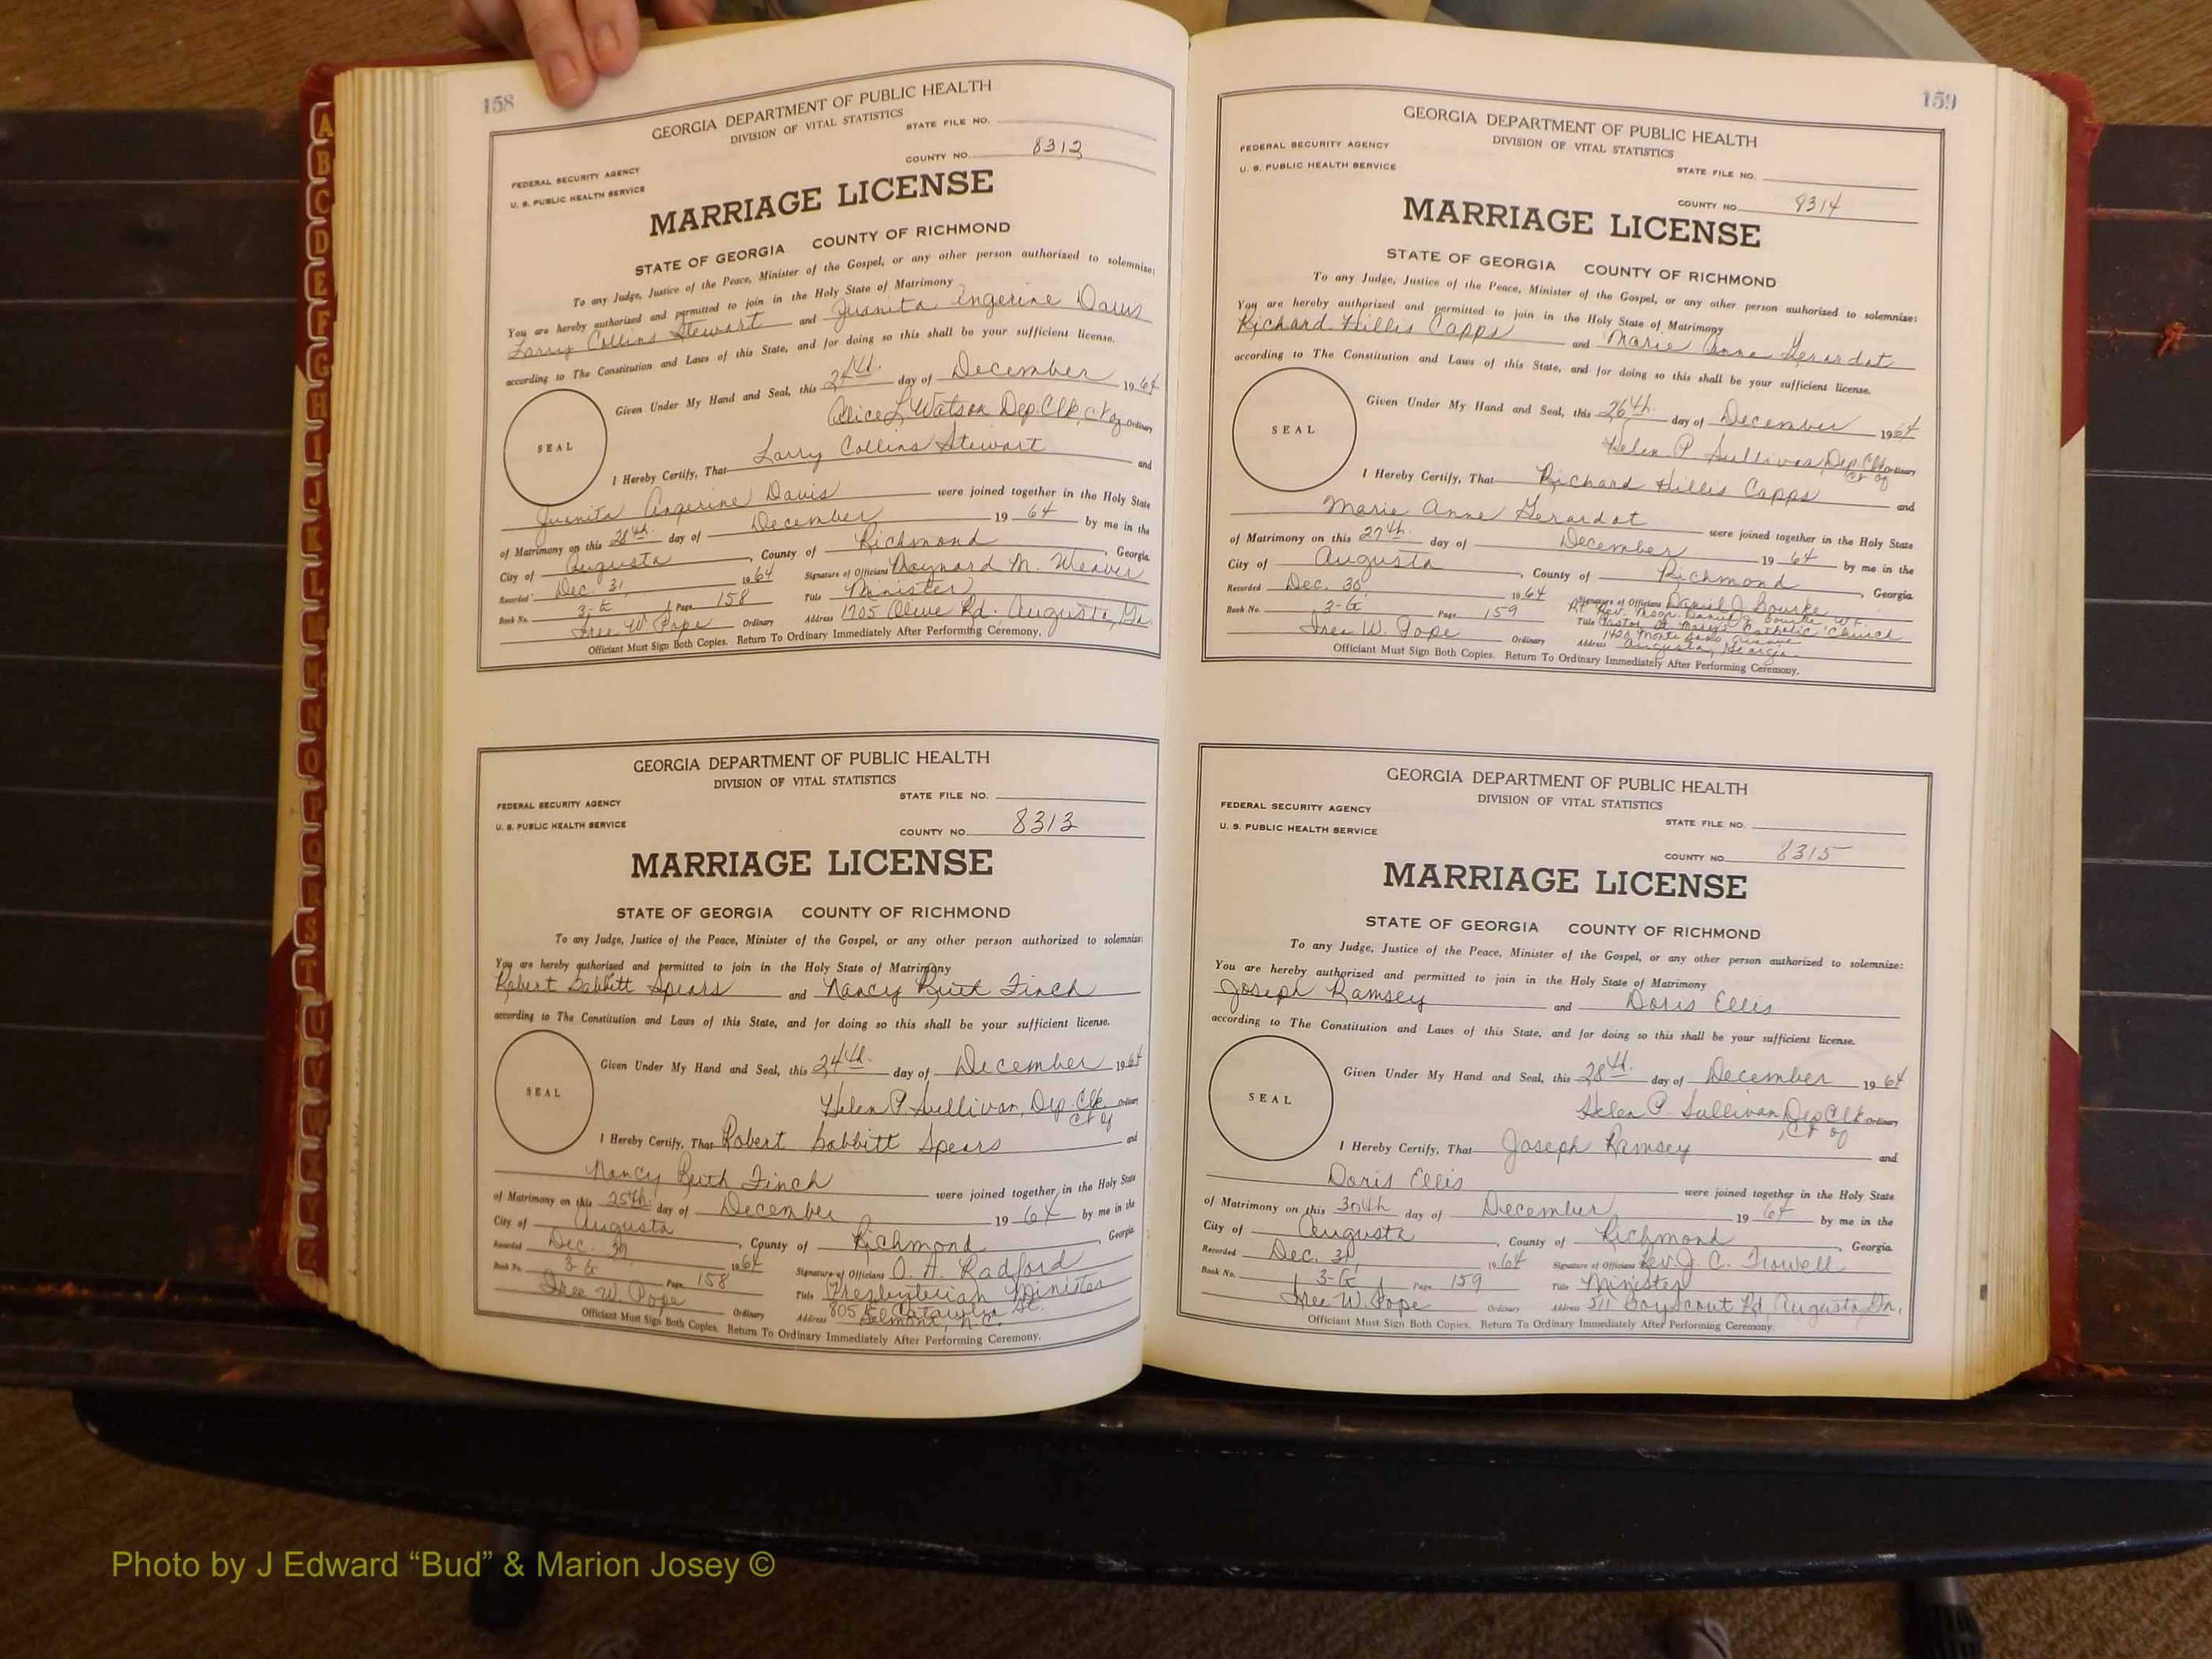 158
GEORGIA DEPARTMENT OF PUBLIC HEALTH
DIVISION OF VITAL STATISTICS
STATE FILE NO.
COUNTY NO. 8312
FEDERAL SECURITY AGENCY
U. S. PUBLIC HEALTH SERVICE
MARRIAGE LICENSE
STATE OF GEORGIA COUNTY OF RICHMOND
To any Judge, Justice of the Peace, Minister of the Gospel, or any other person authorized to solemnize:
You are hereby authorized and permitted to join in the Holy State of Matrimony
Larry Collins Stewart and Juanita Angerine Davis
according to The Constitution and Laws of this State, and for doing so this shall be your sufficient license.
Given Under My Hand and Seal, this 24th. day of December 1964
SEAL
Alice L. Watson Dep. Clk. Ct of Ordinary
I Hereby Certify, That Larry Collins Stewart and
Juanita Angerine Davis were joined together in the Holy State
of Matrimony on this 28th. day of December 1964 by me in the
City of Augusta, County of Richmond, Georgia.
Recorded Dec. 31, 1964 Signature of Officiant Maynard M. Weaver
Book No. 3-G Page 158 Title Minister
Iree W. Pope Ordinary Address 1705 Olive Rd. Augusta, Ga.
Officiant Must Sign Both Copies. Return To Ordinary Immediately After Performing Ceremony.
GEORGIA DEPARTMENT OF PUBLIC HEALTH
DIVISION OF VITAL STATISTICS
STATE FILE NO.
FEDERAL SECURITY AGENCY
U. S. PUBLIC HEALTH SERVICE
COUNTY NO. 8313
MARRIAGE LICENSE
STATE OF GEORGIA COUNTY OF RICHMOND
To any Judge, Justice of the Peace, Minister of the Gospel, or any other person authorized to solemnize:
You are hereby authorized and permitted to join in the Holy State of Matrimony
Robert Babbitt Spears and Nancy Ruth Finch
according to The Constitution and Laws of this State, and for doing so this shall be your sufficient license.
Given Under My Hand and Seal, this 24th. day of December 1964
SEAL
Helen P. Sullivan, Dep. Clk. Ordinary
Ct of
I Hereby Certify, That Robert Babbitt Spears and
Nancy Ruth Finch were joined together in the Holy State
of Matrimony on this 25th. day of December 1964 by me in the
City of Augusta, County of Richmond, Georgia
Recorded Dec. 1964 Signature of Officiant O. A. Radford
Book No. 3-G Page 158 Title Presbyterian Minister
Iree W. Pope Ordinary Address 805 E. Catawba St.
Belmont, N.C.
Officiant Must Sign Both Copies. Return To Ordinary Immediately After Performing Ceremony.
159
GEORGIA DEPARTMENT OF PUBLIC HEALTH
DIVISION OF VITAL STATISTICS
FEDERAL SECURITY AGENCY
U. S. PUBLIC HEALTH SERVICE
STATE FILE NO.
COUNTY NO. 8314
MARRIAGE LICENSE
STATE OF GEORGIA COUNTY OF RICHMOND
To any Judge, Justice of the Peace, Minister of the Gospel, or any other person authorized to solemnize:
You are hereby authorized and permitted to join in the Holy State of Matrimony
Richard Hillis Capps and Marie Anne Gerardot
according to The Constitution and Laws of this State, and for doing so this shall be your sufficient license.
Given Under My Hand and Seal, this 26th. day of December 1964
SEAL
Helen P. Sullivan, Dep. Clk. Ordinary
Ct of
I Hereby Certify, That Richard Hillis Capps and
Marie Anne Gerardot were joined together in the Holy State
of Matrimony on this 27th. day of December 1964 by me in the
City of Augusta, County of Richmond, Georgia.
Recorded Dec. 30 1964 Signature of Officiant Daniel J. Bourke
Rt. Rev. Msgr. Daniel J. Bourke V.F.
Book No. 3-G Page 159 Title Pastor St. Mary's Catholic Church
Iree W. Pope Ordinary Address 1420 Monte Sano Avenue
Augusta, Georgia
Officiant Must Sign Both Copies. Return To Ordinary Immediately After Performing Ceremony.
GEORGIA DEPARTMENT OF PUBLIC HEALTH
DIVISION OF VITAL STATISTICS
FEDERAL SECURITY AGENCY
U. S. PUBLIC HEALTH SERVICE
STATE FILE NO.
COUNTY NO. 8315
MARRIAGE LICENSE
STATE OF GEORGIA COUNTY OF RICHMOND
To any Judge, Justice of the Peace, Minister of the Gospel, or any other person authorized to solemnize:
You are hereby authorized and permitted to join in the Holy State of Matrimony
Joseph Ramsey and Doris Ellis
according to The Constitution and Laws of this State, and for doing so this shall be your sufficient license.
Given Under My Hand and Seal, this 28th. day of December 1964
SEAL
Helen P. Sullivan Dep Clk Ordinary
, Ct of
I Hereby Certify, That Joseph Ramsey and
Doris Ellis were joined together in the Holy State
of Matrimony on this 30th day of December 1964 by me in the
City of Augusta, County of Richmond, Georgia.
Recorded Dec. 31, 1964 Signature of Officiant Rev. J. C. Trowell
Book No. 3-G Page 159 Title Minister
Iree W. Pope Ordinary Address 511 Boyscout Rd, Augusta, Ga.
Officiant Must Sign Both Copies. Return To Ordinary Immediately After Performing Ceremony.
A
B
C
D
E
F
G
H
I
J
K
L
M
Mc
N
O
P
Q
R
S
T
U
V
W
Y
Z
Photo by J Edward “Bud” & Marion Josey ©